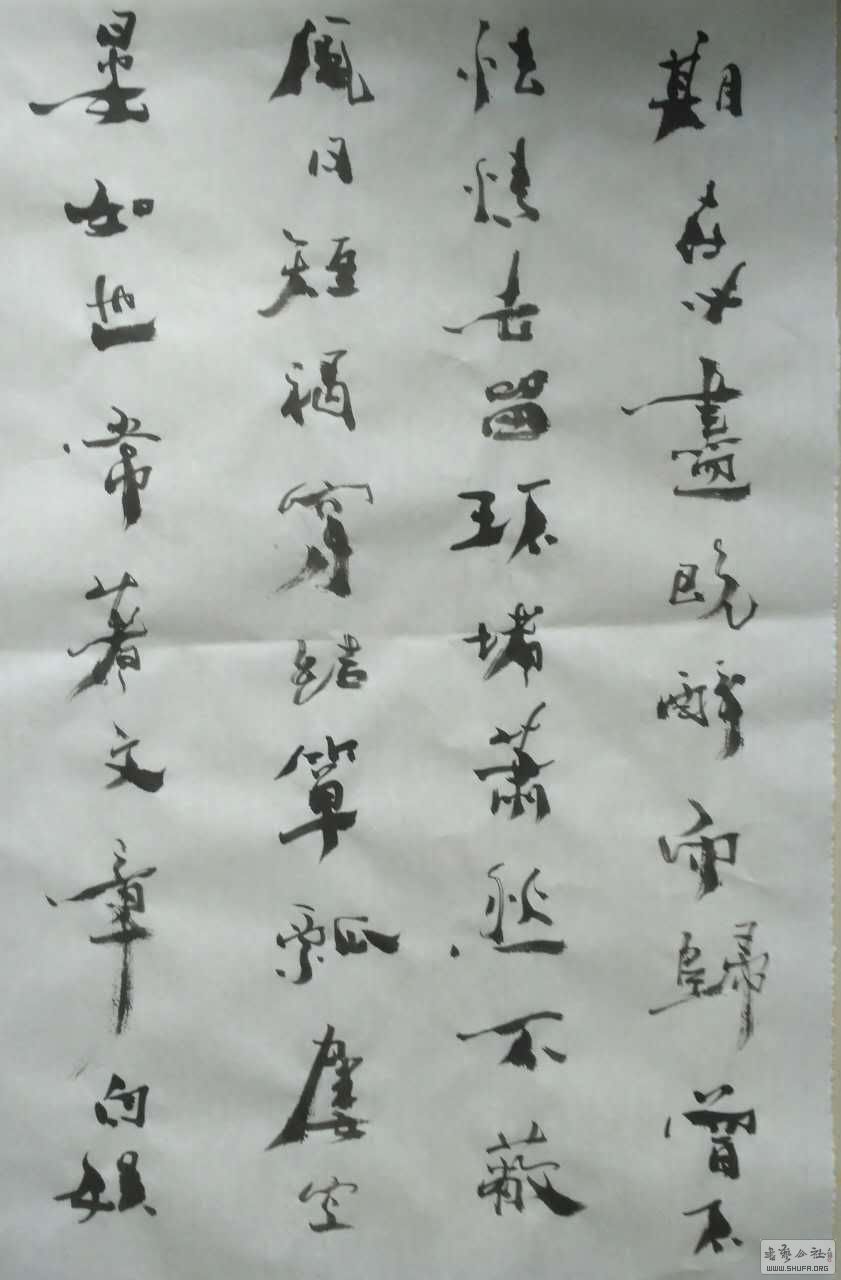 期在必盡既醉而歸曾不
情去留环堵蕭然不蔽
風日短褐穿結箪瓢屢空
晏如也常著文章自娛
書藝公社
WWW.SHUFA.ORG